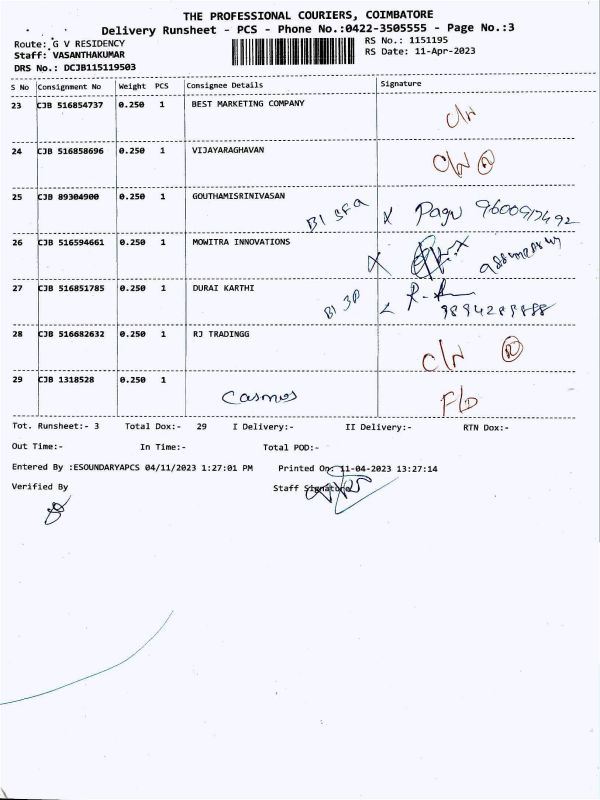 THE PROFESSIONAL COURIERS, COIMBATORE
Delivery Runsheet - PCS - Phone No.:0422-3505555 - Page No.:3
Route: G V RESIDENCY
RS No.: 1151195
Staff: VASANTHAKUMAR
RS Date: 11-Apr-2023
DRS No.: DCJB115119503
S No Consignment No Weight PCS Consignee Details Signature
23 CJB 516854737 0.250 1 BEST MARKETING COMPANY C/N
24 CJB 516858696 0.250 1 VIJAYARAGHAVAN C/N R
25 CJB 89304900 0.250 1 GOUTHAMISRINIVASAN
26 CJB 516594661 0.250 1 MOWITRA INNOVATIONS
27 CJB 516851785 0.250 1 DURAI KARTHI
28 CJB 516682632 0.250 1 RJ TRADINGG C/N R
29 CJB 1318528 0.250 1 Casmos
Tot. Runsheet:- 3 Total Dox:- 29 I Delivery:- II Delivery:- RTN Dox:-
Out Time:- In Time:- Total POD:-
Entered By :ESOUNDARYAPCS 04/11/2023 1:27:01 PM Printed On: 11-04-2023 13:27:14
Verified By Staff Signature